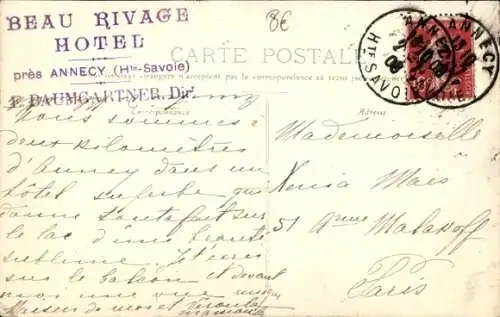 BEAU RIVAGE
HOTEL
près ANNECY (Hte-Savoie)
F. BAUMGARTNER, Dir.
8€
CARTE POSTALE
étrangers n'acceptent pas la correspondance au recto
Correspondance
Adresse
ANNECY
ANNECY
Hte SAVOIE
Nous sommes à
deux kilomètres
d'Annecy dans un
hôtel superbe qui
donne tout à fait sur
le lac d'une beauté
sublime. Je t'écris
sur le balcon et devant
moi une vue
Mademoiselle
Xenia Mais
51 Avenue Malakoff
Paris